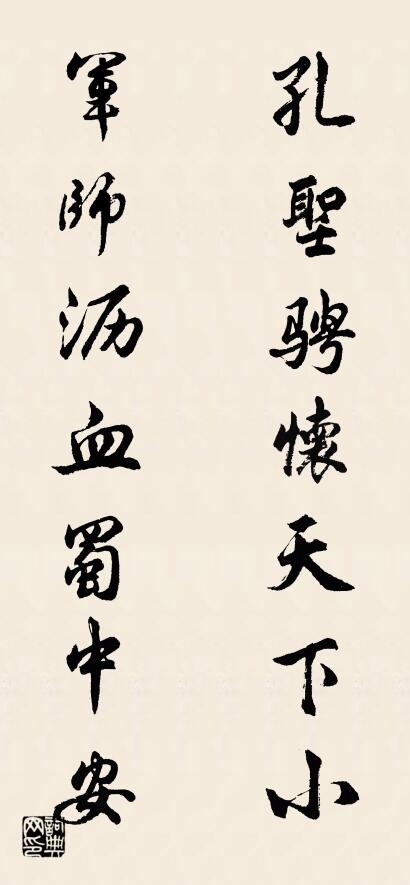 孔聖骋懷天下小
軍師沥血蜀中安
詞典网印